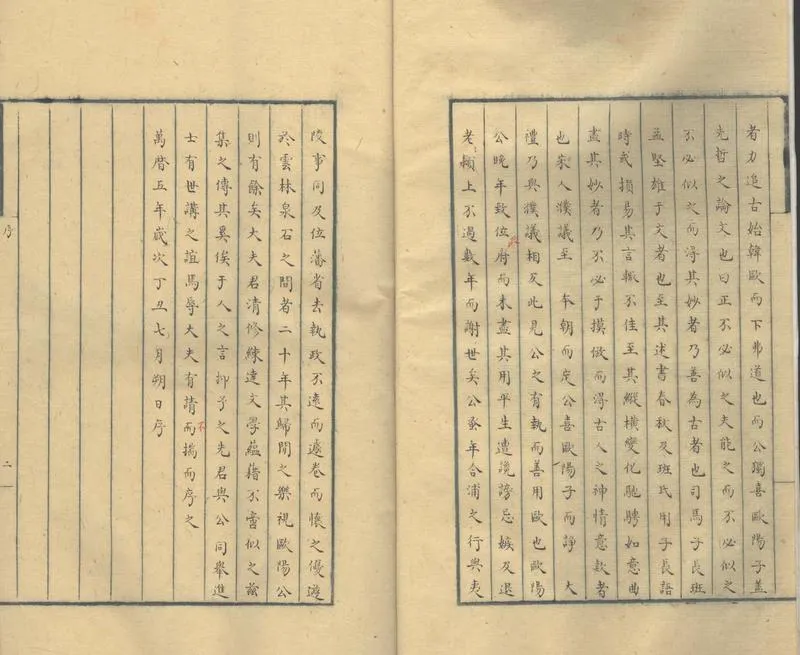 者力追古始韓歐而下弗道也而公獨喜歐陽子蓋
先哲之論文也曰正不必似之夫能之而不必似之
不必似之而得其妙者乃善為古者也司馬子長班
孟堅雄于文者也至其述書春秋及班氏用子長語
時或損易其言輒不佳至其縱橫變化馳騁如意曲
盡其妙者乃不必于摸倣而得古人之神情意欵者
也宋人濮議至 本朝而定公喜歐陽子而諍 大
禮乃與濮議相反此見公之有執而善用歐也歐陽
公晚年致位府而未盡其用平生遭讒謗忌嫉及退
老潁上不過數年而謝世矣公蚤年合浦之行與夷
陵事同及位藩省去執政不遠而遽卷而懷之優游
於雲林泉石之間者二十年其歸閒之樂視歐陽公
則有餘矣大夫君清修練達文學蘊藉不啻似之茲
集之傳其奚俟于人之言抑予之先君與公同舉進
士有世講之誼焉辱大夫有請而揣而序之
不
萬曆五年歲次丁丑七月朔日序
序
二